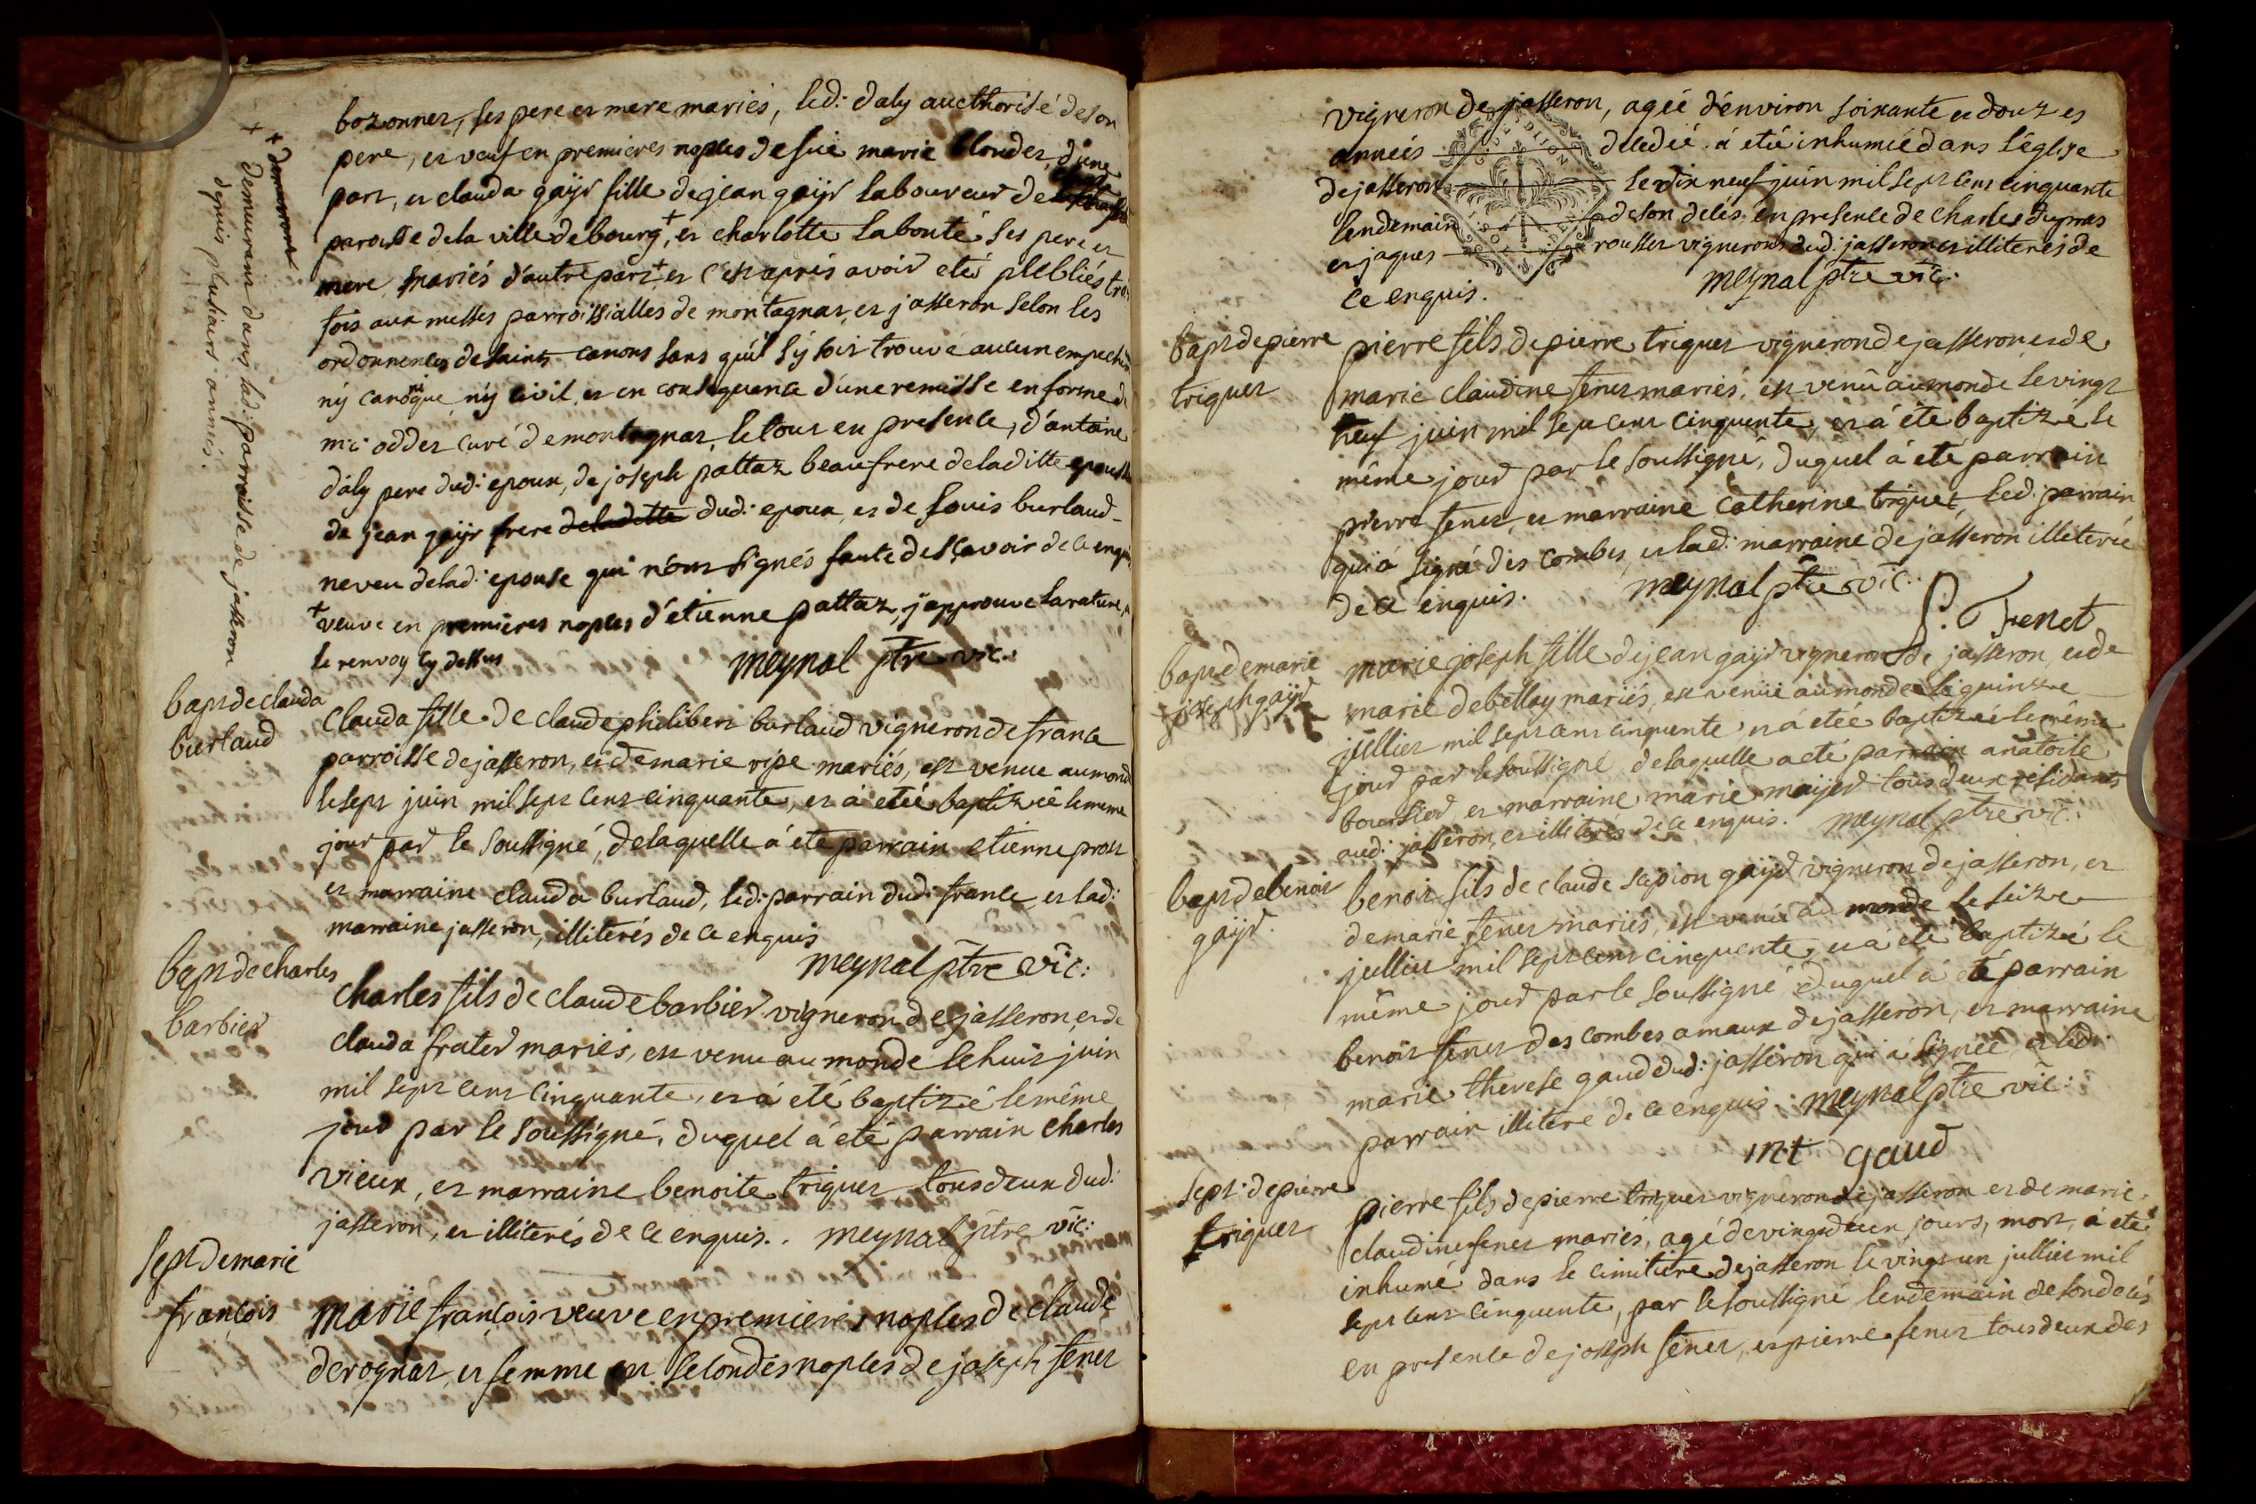 bozonnet, ses pere et mere mariés, led: daly aucthorisé de son
pere, et veuf en premieres noples de fuë marie blondet, d'une
part, et clauda gaijd fille de jean gaijd laboureur de
paroisse de la ville de bourg + et charlotte labonté ses pere et
mere mariés d'autre part + et c'est aprés avoir eté plebliés
fois aux messes parroissialles de montagnat et jasseron selon les
ordonnences de saints canons sans qu'il s'ÿ soit trouvé aucun
nÿ canonique nÿ civil, et en consequence d'une remisse en forme
mr odder curé de montagnat, le tout en presence, d'antoine
dâly pere dud: epoux, de joseph pattaz beaufrere de la ditte
de jean gaijd frere de ladette dud: epoux et de louis burlaud
neveu de lad: epouse qui n'ont signés faute de sçavoir de ce
+ veuve en premieres noples d'étienne pattaz, j'approuve la rature,
le renvoy cy dessus
meynal ptre vic:
+ demeurant dans lad: parroisse de jasseron
depuis plusieurs années.
bapt de clauda
burlaud
Clauda fille de claude philibert burlaud vigneron de france
parroisse de jasseron, et de marie ripe mariés, est venue au monde
le sept juin mil sept cent cinquante, et á etée baptizée le meme
jour par le soussigné, de laquelle á été parrain etienne prost
et marraine clauda burlaud, led: parrain dud: france et lad:
marraine jasseron, illiterés de ce enquis
meynal ptre vic:
bapt de charles
barbier
charles fils de claude barbier vigneron de jasseron, et de
clauda frater mariés, est venu au monde le huit juin
mil sept cent cinquante, et á été baptizé le même
jour par le soussigné, duquel á eté parrain charles
vieux, et marraine benoite triquet tous deux dud:
jasseron, et illiterés de ce enquis. meynal ptre vic:
sept de marie
françois
marie françois veuve en premieres noples de claude
derognat, et femme en secondes noples de joseph fenet
vigneron de jasseron, agéé d'environ soixante et douz es
années decedéé á etéé inhuméé dans l'église
de jasseron le dix neuf juin mil sept cent cinquante
lendemain de son decés, en presence de charles
et jaques rousset vignerons dud: jasseron et illiterés de
ce enquis. meynal ptre vic:
bapt de pierre
triquet
pierre fils de pierre triquet vigneron de jasseron et de
marie claudine fenet mariés, est venû au monde le vingt
neuf juin mil sept cent cinquente, et á été baptizé le
même jour par le soussigné, duquel á eté parrain
pierre fenet, et marraine catherine triquet, led: parrain
qui á signé des combes, et lad: marraine de jasseron illiterée
de ce enquis. meynal ptre vic:
P. Fenet
bapt de marie
joseph gaijd
marie joseph fille de jean gaijd vigneron de jasseron, et de
marie debellay mariés, est venüe au monde le quinzze
jullier mil sept cent cinquente, et á etée baptizéé le même
jour par le soussigné de laquelle a eté parrain anatoile
boursier et marraine marie maijer tous deux residants
aud: jasseron, et illiterés de ce enquis. meynal ptre vic:
bapt de benoit
gaijd.
benoit fils de claude scipion gaijd vigneron de jasseron, et
de marie fenet mariés, est venu au monde le seize
jullier mil sept cent cinquente, et á eté baptizé le
même jour par le soussigné duquel á eté parrain
benoit fenet des combes amaux de jasseron, et marraine
marie therese gaud dud: jasseron qui á signée et led:
parrain illitéré de ce enquis. meynal ptre vic:
mt gaud
sept: de pierre
triquet
pierre fils de pierre triquet vigneron de jasseron et de marie
claudine fenet mariés, agé de vingt deux jours, mort, á eté
inhumé dans le cimitiere de jasseron le vingt un jullier mil
sept cent cinquente, par le soussigné lendemain de son decés
en presence de joseph fenet, et pierre fenet tous deux des